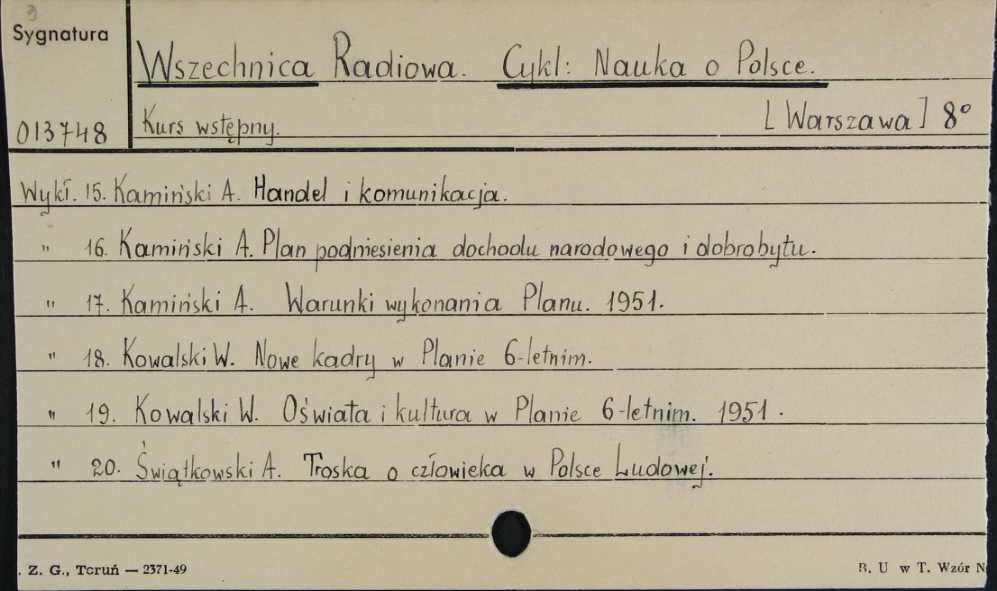 Sygnatura
Wszechnica Radiowa. Cykl: Nauka o Polsce.
013748 Kurs wstępny. [Warszawa] 8°
Wykł. 15. Kamiński A. Handel i komunikacja.
" 16. Kamiński A. Plan podniesienia dochodu narodowego i dobrobytu.
" 17. Kamiński A. Warunki wykonania Planu. 1951.
" 18. Kowalski W. Nowe kadry w Planie 6-letnim.
" 19. Kowalski W. Oświata i kultura w Planie 6-letnim. 1951.
" 20. Świątkowski A. Troska o człowieka w Polsce Ludowej.
. Z. G., Toruń — 2371-49 B. U w T. Wzór N